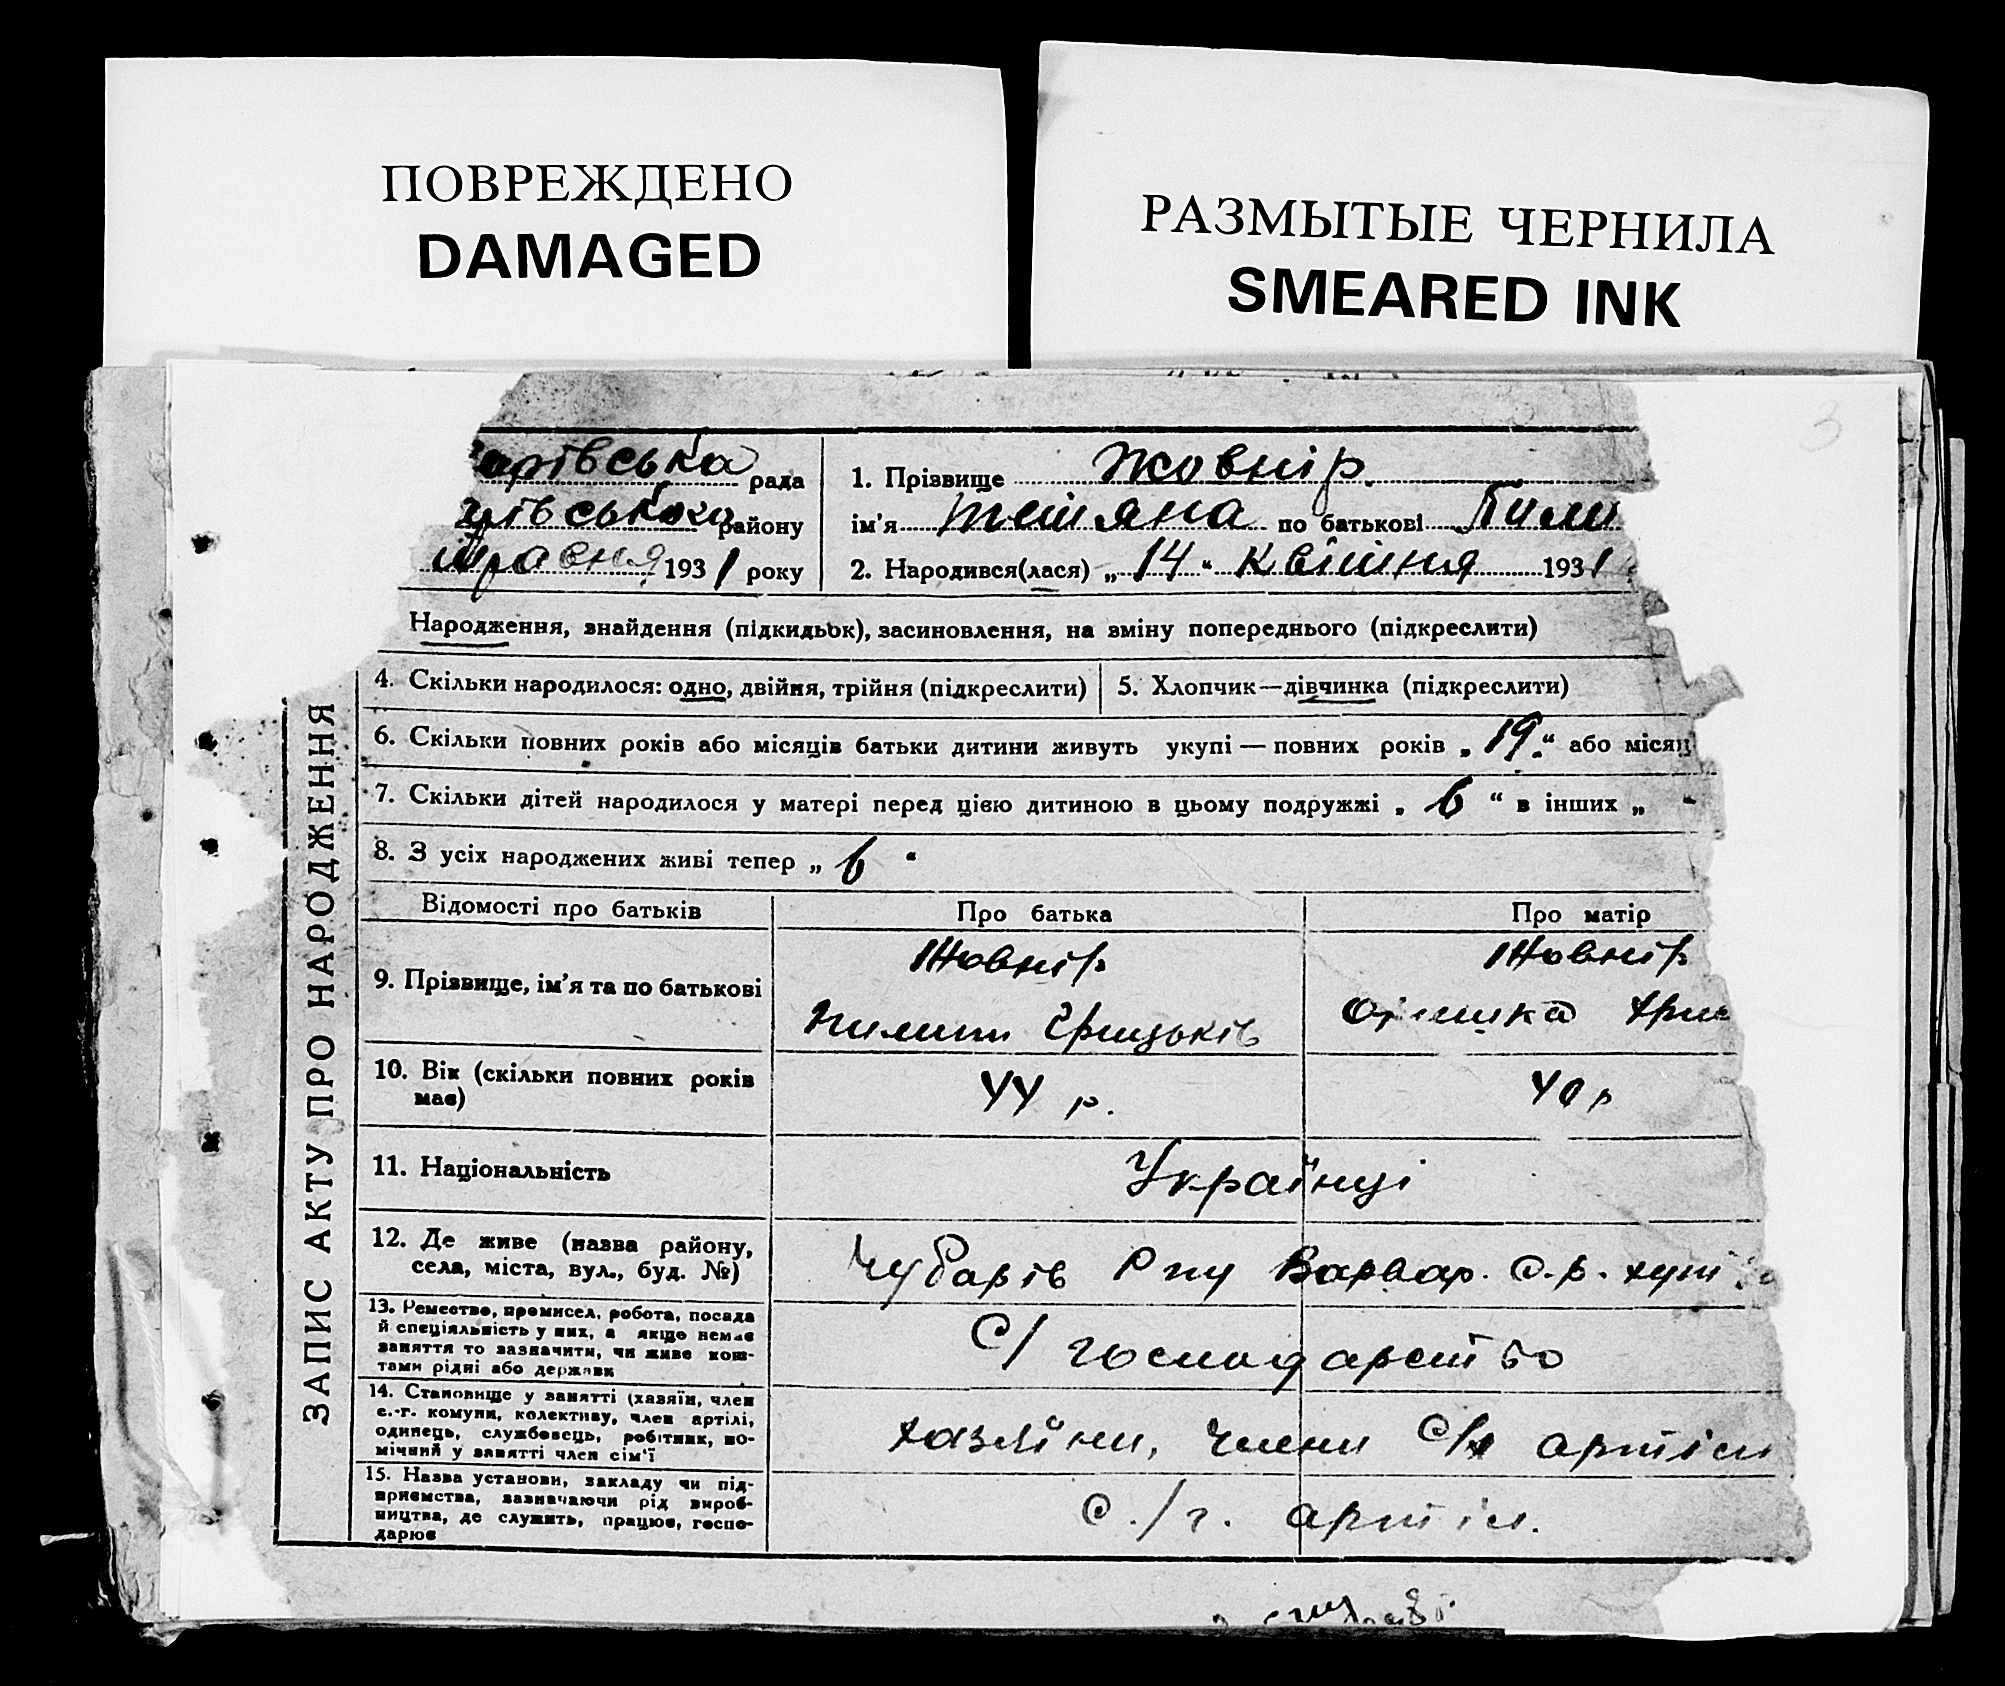 ПОВРЕЖДЕНО
DAMAGED
РАЗМЫТЫЕ ЧЕРНИЛА
SMEARED INK
3
арівська рада
району
травня 1931 року
1. Прізвище Жовнір
ім'я Тетяна по батькові Пили
2. Народився(лася) „14" квітня 1931
Народження, знайдення (підкидьок), засиновлення, на зміну попереднього (підкреслити)
4. Скільки народилося: одно, двійня, трійня (підкреслити)
5. Хлопчик—дівчинка (підкреслити)
6. Скільки повних років або місяців батьки дитини живуть укупі — повних років „19" або місяц
7. Скільки дітей народилося у матері перед цією дитиною в цьому подружжі „6" в інших „ -
8. З усіх народжених живі тепер „6"
ЗАПИС АКТУ ПРО НАРОДЖЕННЯ
Відомості про батьків
Про батька
Про матір
9. Прізвище, ім'я та по батькові
Жовнір
Пилип Грицьків
Жовнір
10. Вік (скільки повних років
має)
44 р.
40 р
11. Національність
Українці
12. Де живе (назва району,
села, міста, вул., буд. №)
Чубарів Рну Варвар. с.р. хут
13. Ремество, промисел, робота, посада
й спеціяльність у них, а якщо немає
заняття то зазначити, чи живе кош-
тами рідні або держави
С/господарство
14. Становище у занятті (хазяїн, член
с.-г. комуни, колективу, член артілі,
одинець, службовець, робітник, по-
мічний у занятті член сім'ї
хазяїни, члени с/г артіли
15. Назва установи, закладу чи під-
приємства, зазначаючи рід вироб-
ництва, де служить, працює, госпо-
дарює
с./г. артіл.